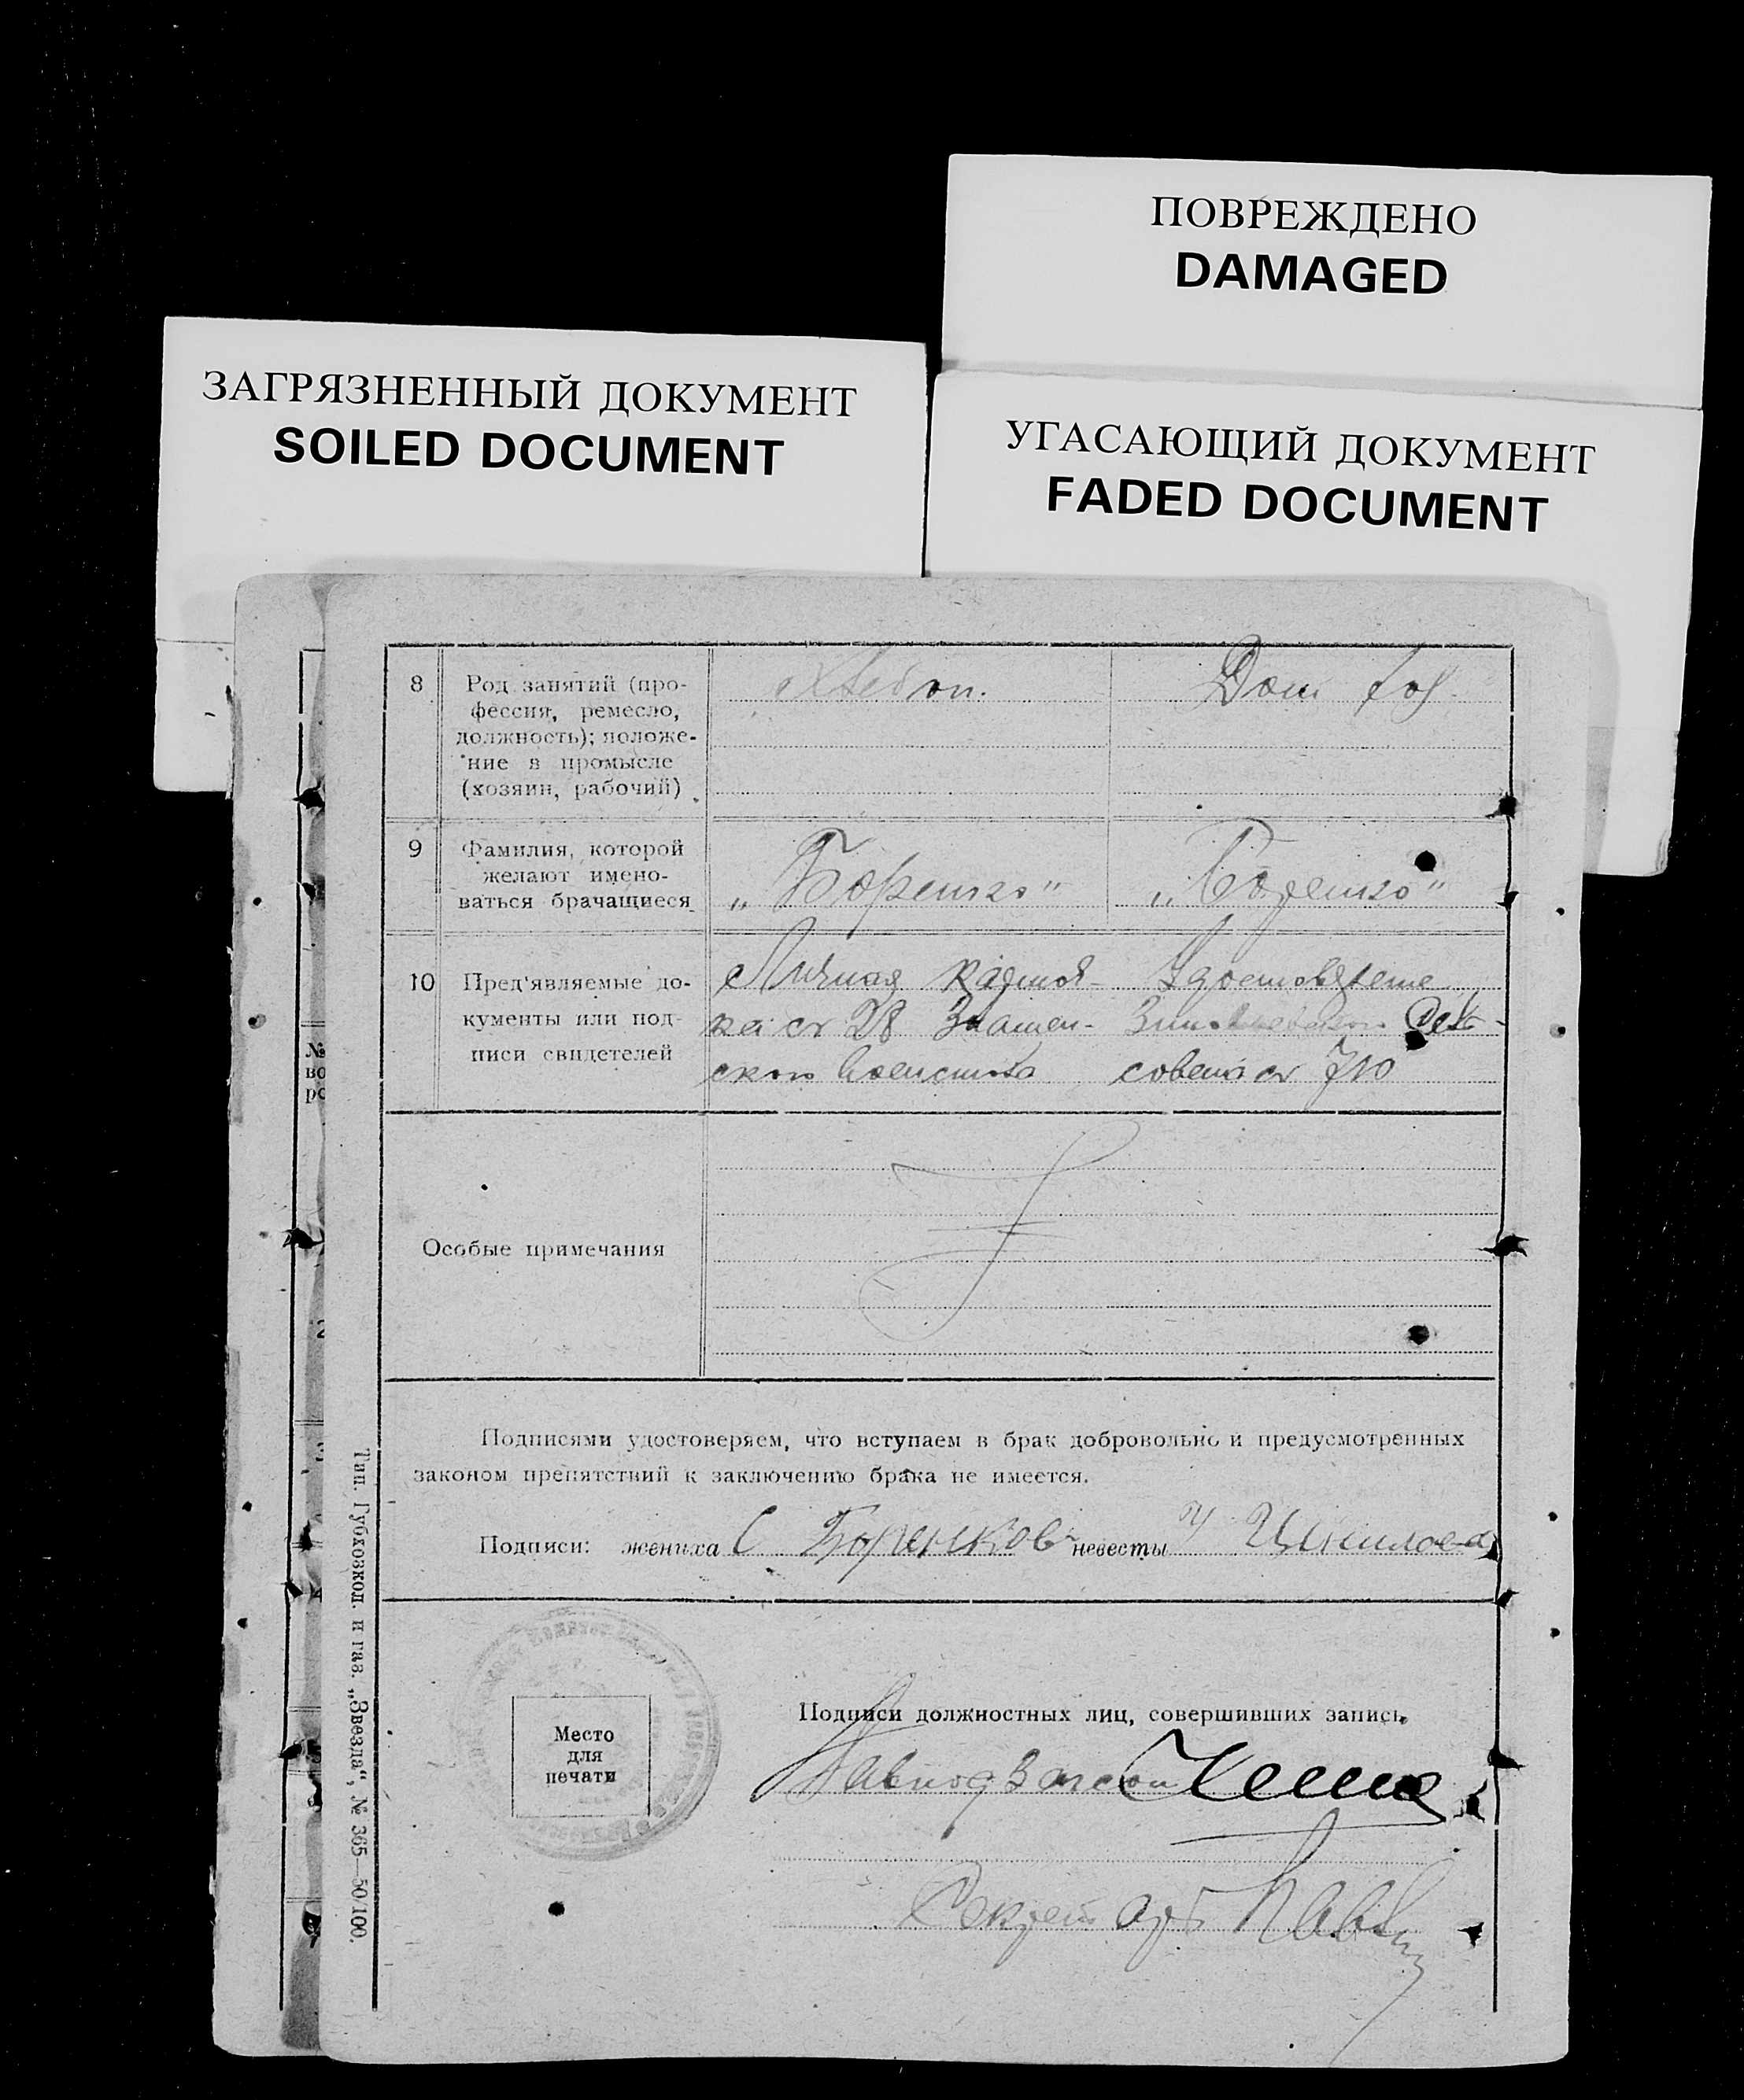 ПОВРЕЖДЕНО
DAMAGED
ЗАГРЯЗНЕННЫЙ ДОКУМЕНТ
SOILED DOCUMENT
УГАСАЮЩИЙ ДОКУМЕНТ
FADED DOCUMENT
8 Род занятий (про-
фессия, ремесло,
должность); положе-
ние в промысле
(хозяин, рабочий)
Хлебоп. Дом хоз.
9 Фамилия, которой
желают имено-
ваться брачащиеся
„Боренко" „Боренко"
10 Пред'являемые до-
кументы или под-
писи свидетелей
Личная карточ-
ка 28 Знамен-
ского
Удостоверение
совета 710
Особые примечания
Подписями удостоверяем, что вступаем в брак добровольно и предусмотренных
законом препятствий к заключению брака не имеется.
Подписи: жениха С невесты
Место
для
печати
Подписи должностных лиц, совершивших запись
Завподзагсом
Секретарь
Тип. Губхозкоп. и газ. „Звезда", № 365—50/100.
№
во
ро